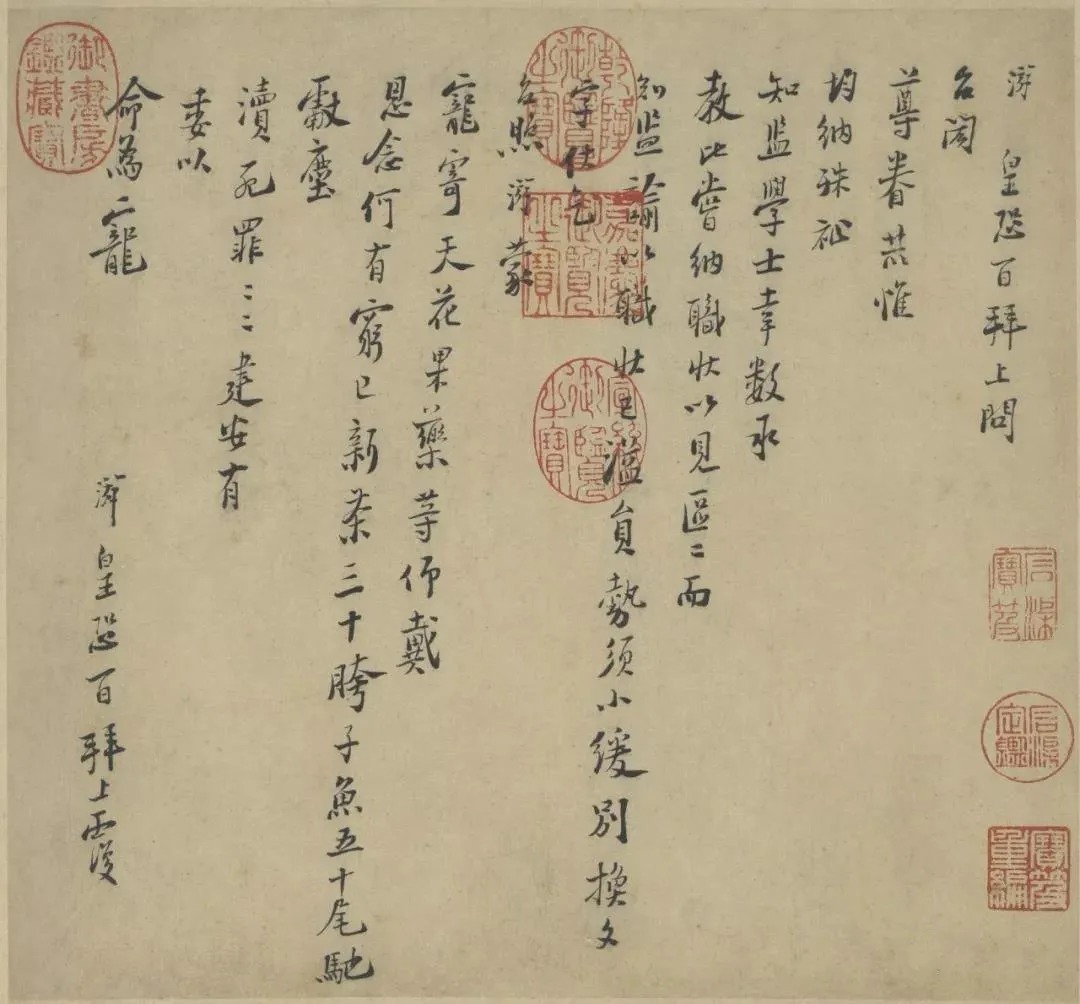 游 皇恐百拜上問
台閤
尊眷共惟
均納殊祉
知監學士幸數承
教比嘗納職狀以見區〻而
知監諭以職狀已溢員勢須小緩別換文
字仕乞
台照游蒙
寵寄天花果藥等仰戴
恩念何有窮已新茶三十胯子魚五十尾馳
獻塵
瀆死罪〻〻建安有
委以
命爲寵
游 皇恐百拜上覆
乾隆御覽之寶
嘉慶御覽之寶
宣統御覽之寶
御書房鑑藏寶
石渠寶笈
石渠定鑑
寶笈重編